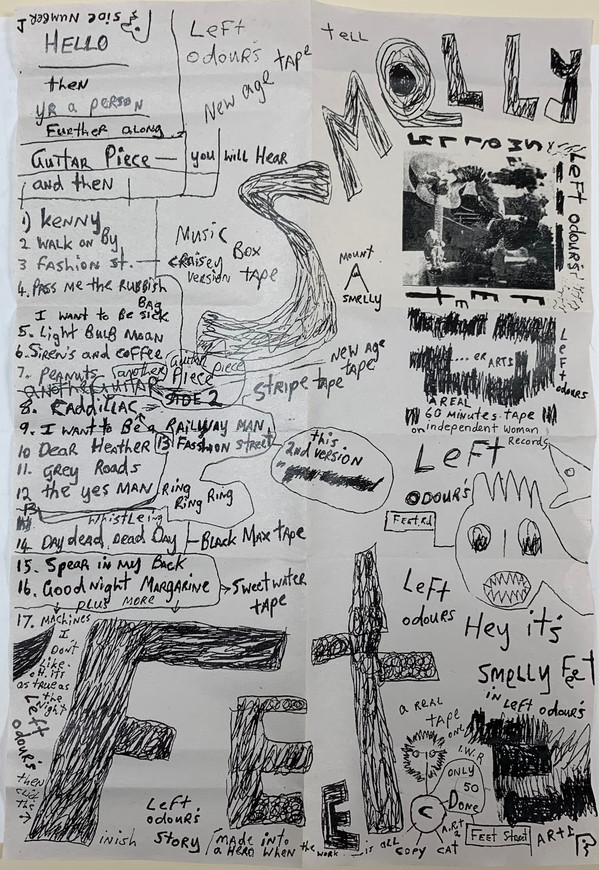 SIDE NUMBER 1
HELLO
then
YR a person
Further along
Guitar Piece — you will Hear
and then
Left
odour's
New age tape
1) Kenny
2 WALK on By
3 Fashion St. —
4. PASS me the RUBBISH
BAG
I want to Be sick
5. Light Bulb Moan
6. Siren's and coffee
7. Peanuts (another guitar piece
Piece
another guitar
SIDE 2
8. Kaddillac
9. I want to Be a RAILWAY MAN
10 Dear Heather 13 FASSHION STREET
11. Grey Roads
12 the yes MAN Ring
Ring Ring Ring
Whistleing
14. Day dead, Dead Day — Black Max tape
15. Spear in My Back
16. Good night Margarine → Sweet water
tape
plus more
17. Machines
I
Don't
Like.
oh its
as true as
the
Night
Left
odour's
Music Box
Craisey
version tape
New age
tape
Stripe tape
this
2nd version
tell
MOLLY
SMELLY
FEET
Left odour's
MOUNT
A
SMELLY
....er ARTS
Left
odours
A REAL
60 minutes. tape
on independent Woman
Records
Left
ODOUR'S
Feet Rd
Left
odours
Hey it's
Smelly Feet
in Left odour's
a real
tape only
I.W.R
ONLY
50
Done
C
COPY CAT
Feet Street
ARTS
S
FEtE
FEET
inish
Left
odours
Story
MADE INTO
a Hero when the work is all